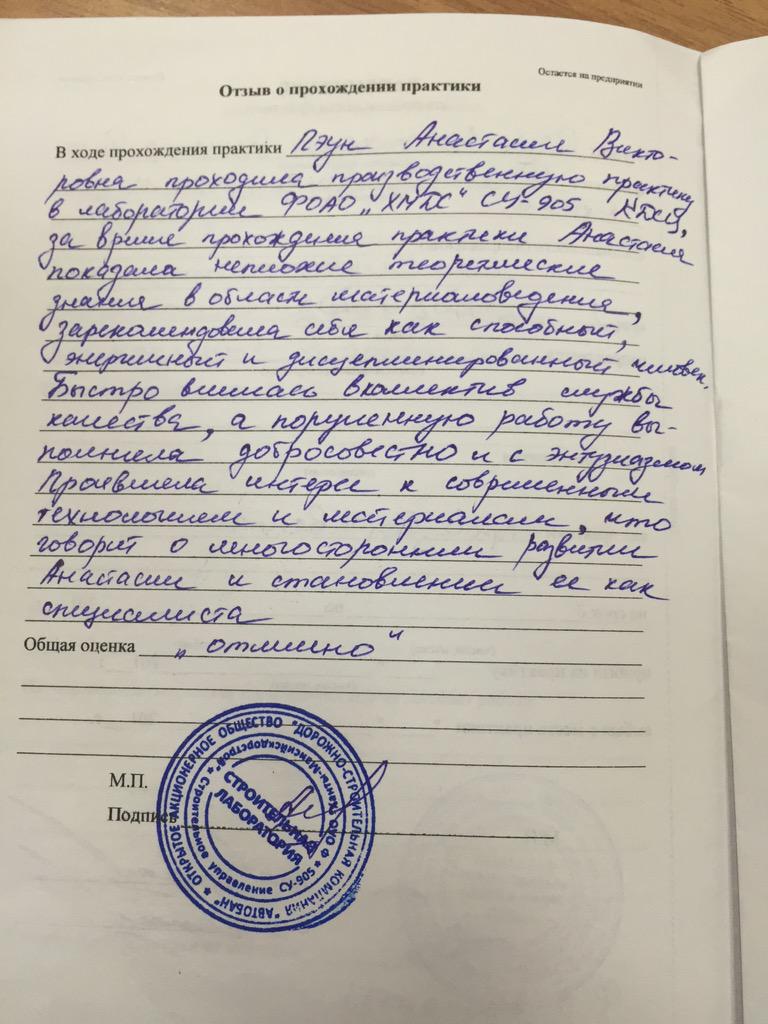 Остается на предприятии
Отзыв о прохождении практики
В ходе прохождения практики Пэун Анастасия Викто-
ровна проходила производственную практику
в лаборатории ФОАО „ХМДС" СУ-905
за время прохождения практики Анастасия
показала неплохие теоретические
знания в области материаловедения,
зарекомендовала себя как способный,
энергичный и дисциплинированный человек.
Быстро влилась в коллектив службы
качества, а порученную работу вы-
полняла добросовестно и с энтузиазмом
Проявляла интерес к современным
технологиям и материалам, что
говорит о многостороннем развитии
Анастасии и становлении ее как
специалиста
Общая оценка „отлично"
М.П.
Подпись
ОТКРЫТОЕ АКЦИОНЕРНОЕ ОБЩЕСТВО "ДОРОЖНО-СТРОИТЕЛЬНАЯ КОМПАНИЯ "АВТОБАН"
Ф ОАО Ханты-Мансийскдорстрой * Строительное управление СУ-905 *
СТРОИТЕЛЬНАЯ
ЛАБОРАТОРИЯ